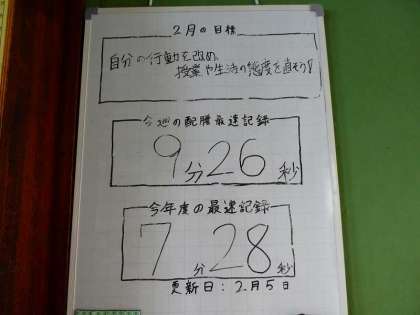 2月の目標
自分の行動を改め、
授業や生活の態度を直そう!
今週の配膳最速記録
9分26秒
今年度の最速記録
7分28秒
更新日:2月5日